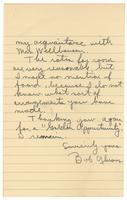 my acquaintance with
Mrs. Wellhausen.
The rates for room
are very reasonable, but
I made no mention of
food, because I do not
know what sort of
arrangements you have
made.
Thanking you again
for a "Golden Opportunity"
I remain
Sincerely yours
Bob